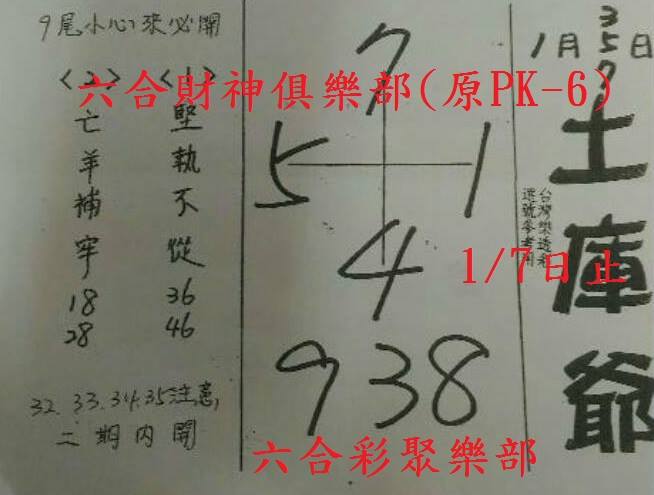 9尾小心來必開
<2> <1>
亡羊補牢
18
28
堅執不從
36
46
32.33.34.35注意,
二期內開
7
5 1
4
938
1月 3 5 7 日
土庫爺
台灣樂透彩
選號參考用
六合財神俱樂部(原PK-6)
1/7日止
六合彩聚樂部